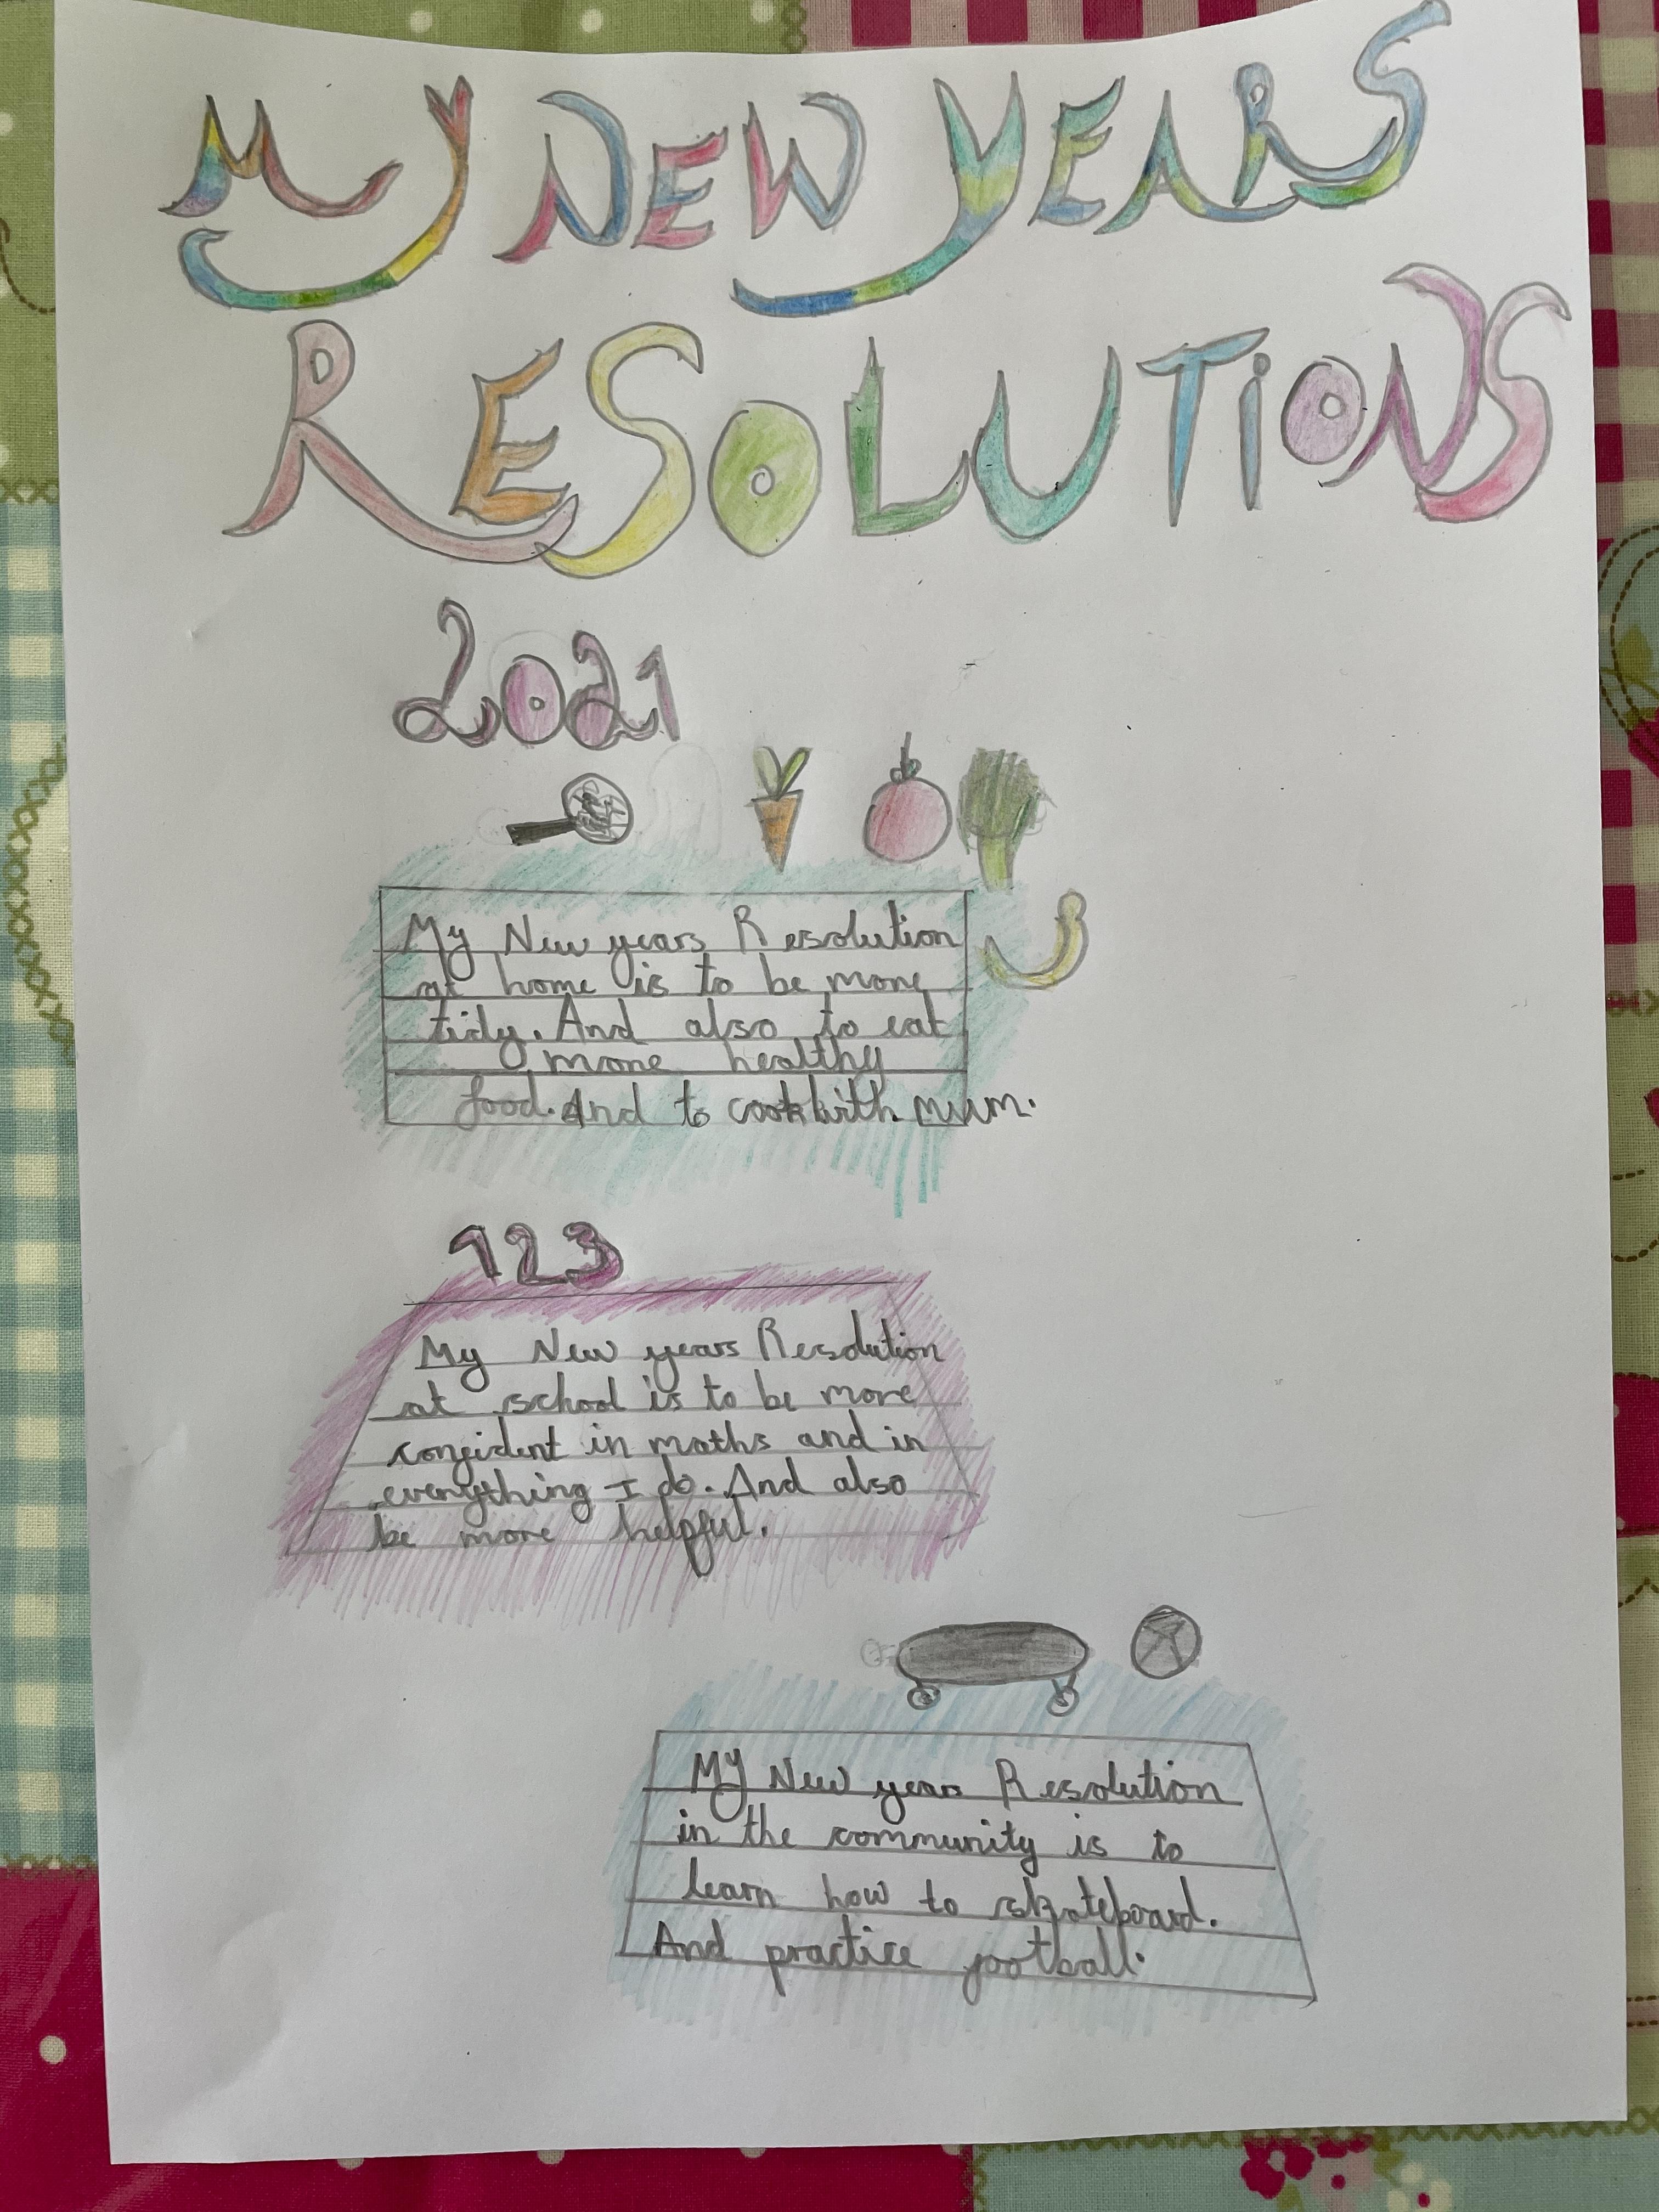 MY NEW YEARS
RESOLUTIONS
2021
My New years Resolution
at home is to be more
tidy. And also to eat
more healthy
food. And to cook with mum.
123
My New years Resolution
at school is to be more
confident in maths and in
everything I do. And also
be more helpful.
MY New years Resolution
in the community is to
learn how to skateboard.
And practice football.